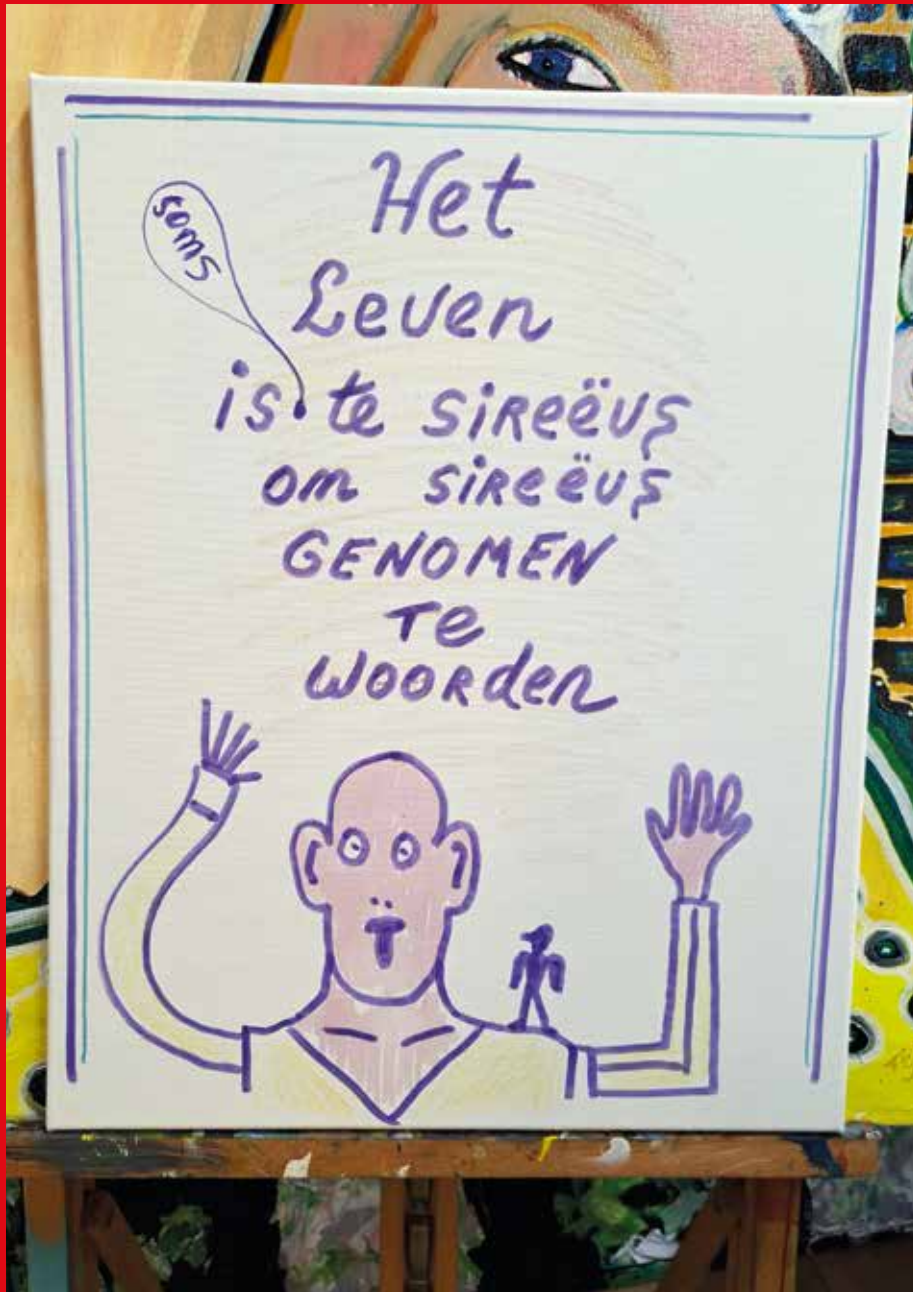 soms
Het
Leven
is te sireëus
om sireëus
GENOMEN
Te
woorden